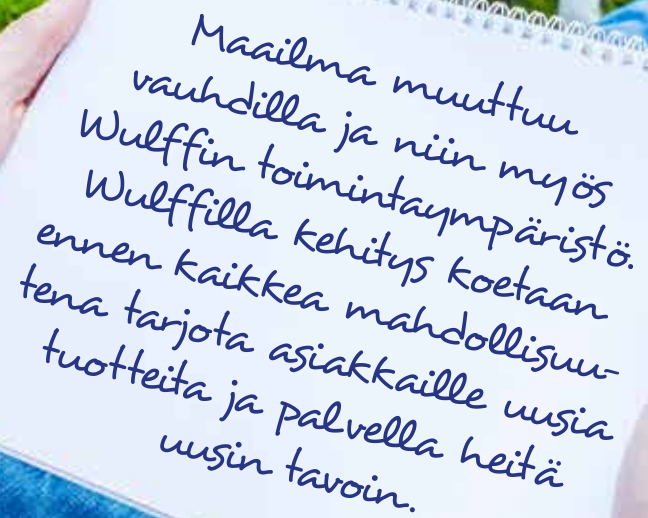 Maailma muuttuu
vauhdilla ja niin myös
Wulffin toimintaympäristö.
Wulffilla kehitys koetaan
ennen kaikkea mahdollisuu-
tena tarjota asiakkaille uusia
tuotteita ja palvella heitä
uusin tavoin.